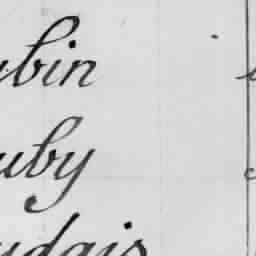 ubin
uby
udais